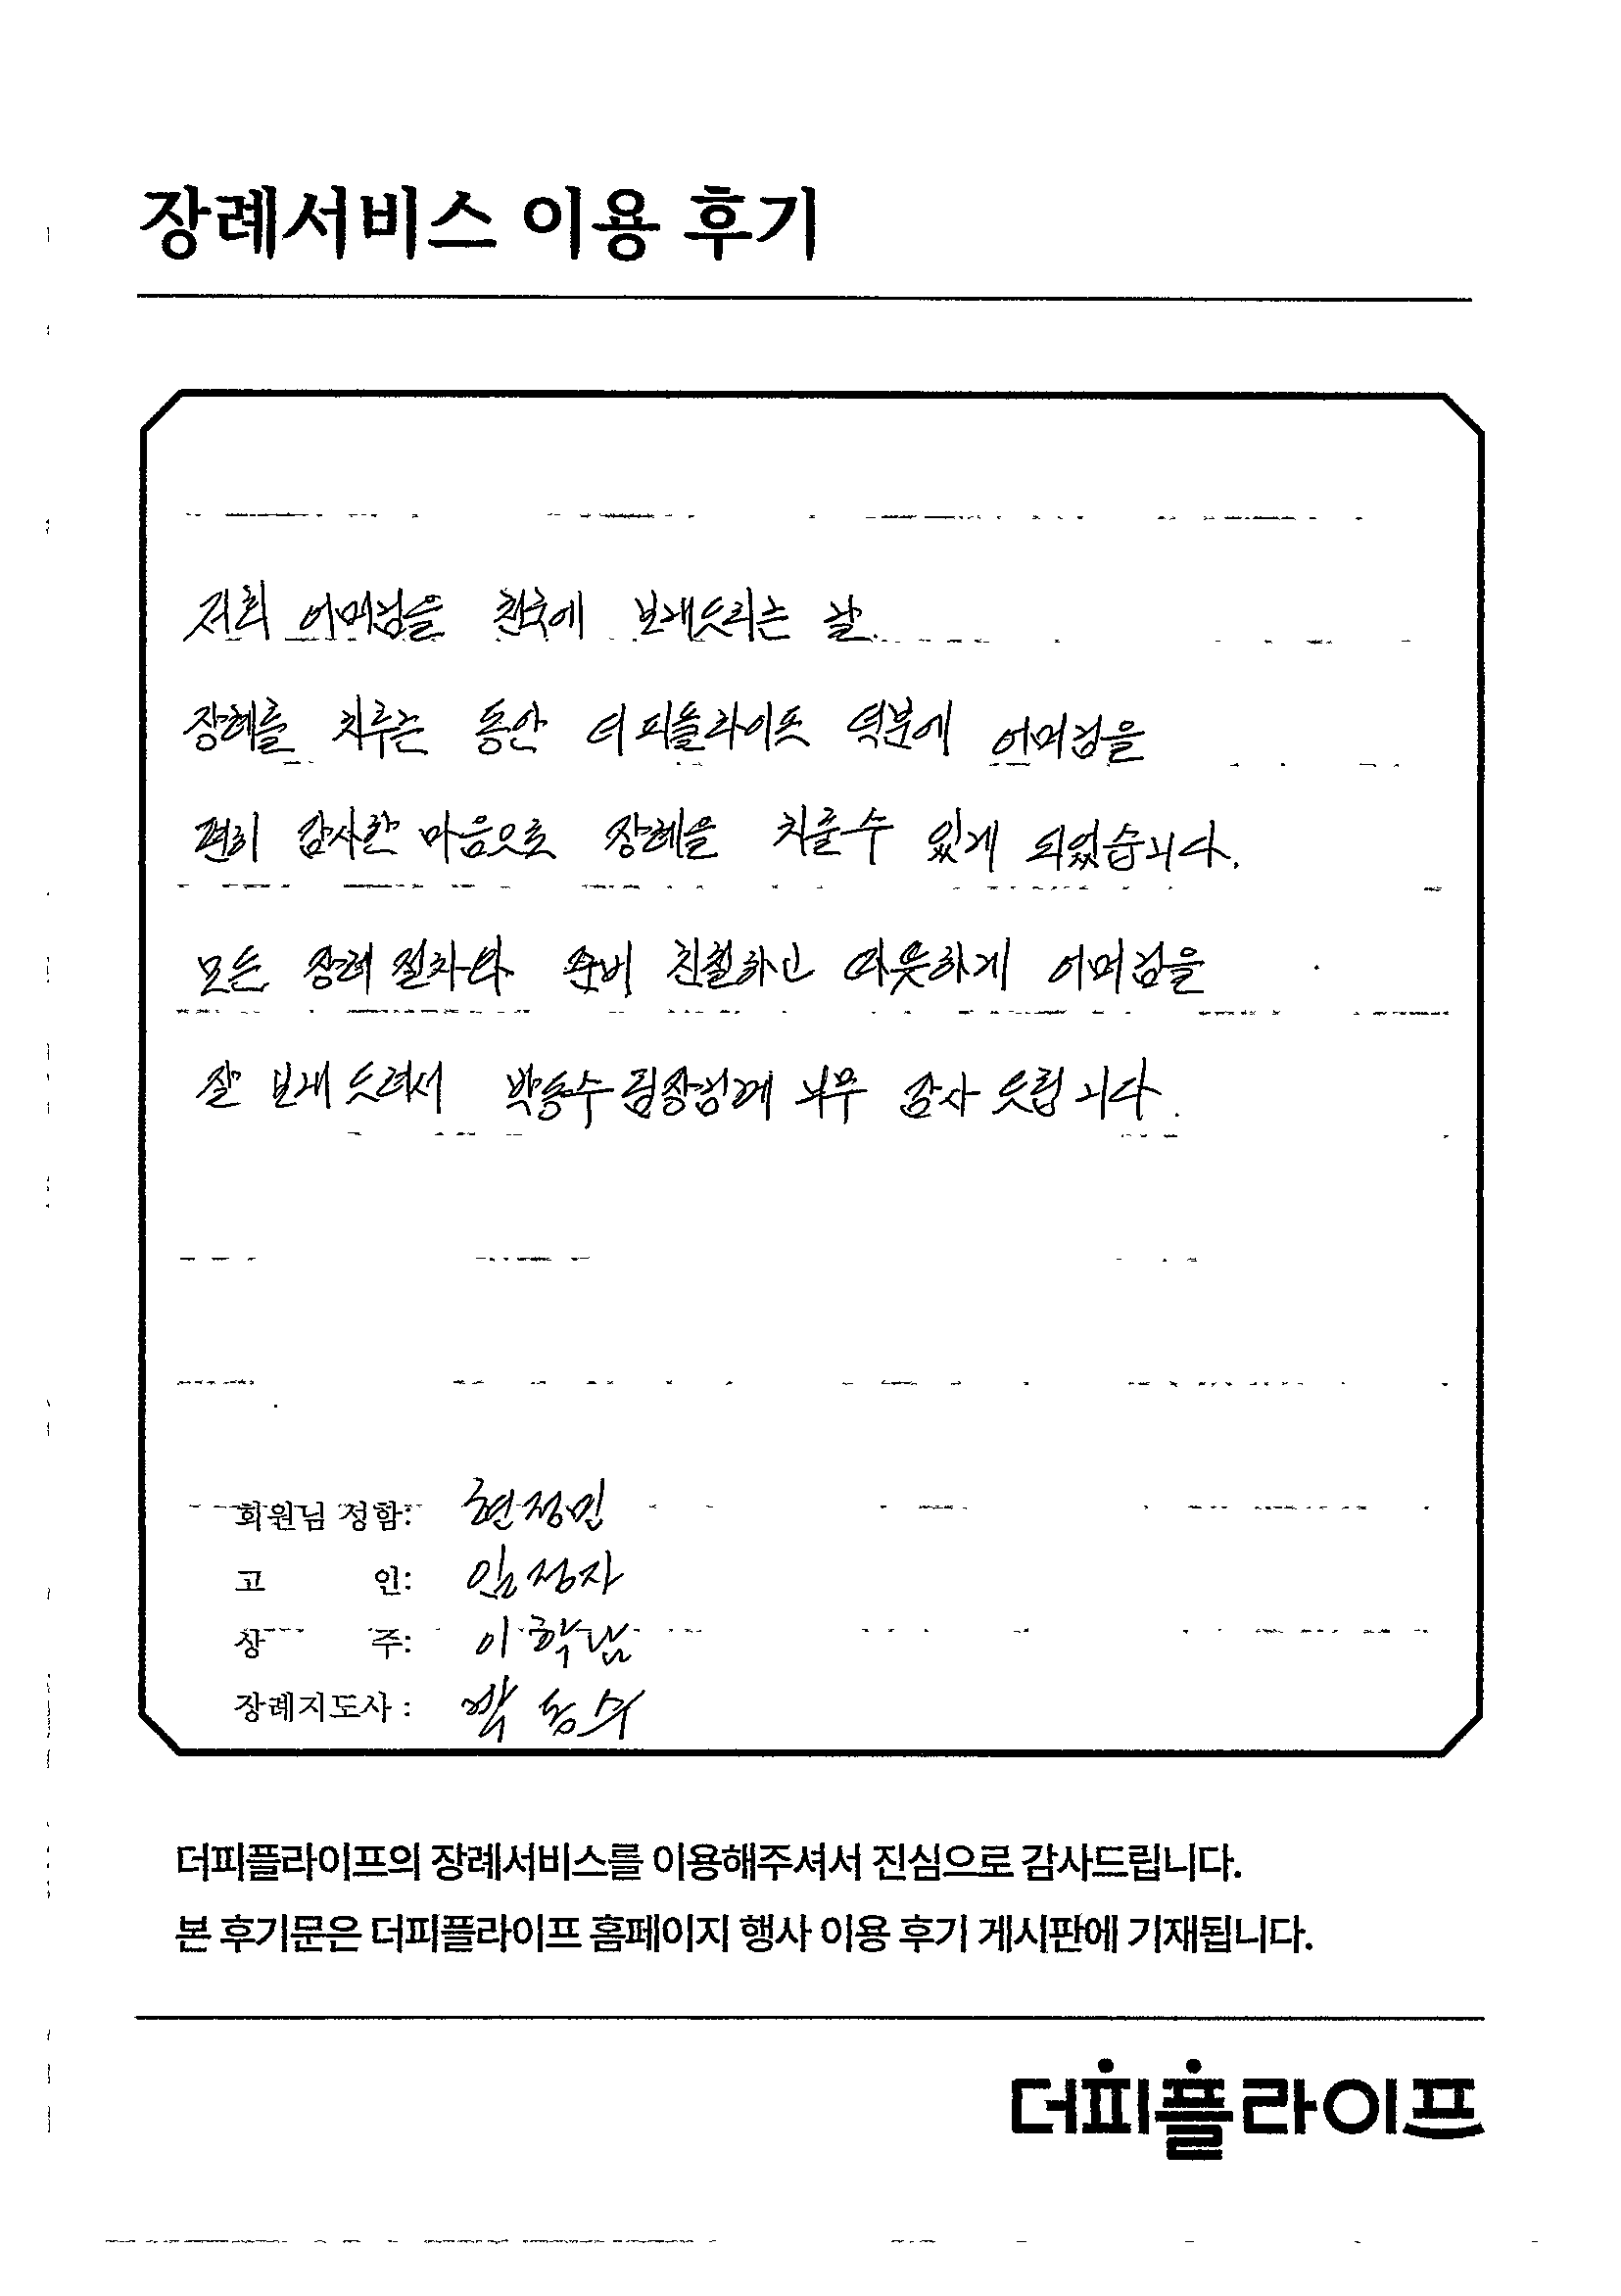 장례서비스 이용 후기
저희 어머님을 천국에 보내드리는 날.
장례를 치루는 동안 더피플라이프 덕분에 어머님을
편히 감사한 마음으로 장례을 치룰수 있게 되었습니다.
모든 장례 절차와 준비 친절하고 따뜻하게 어머님을
잘 보내 드려서 박동수 팀장님께 너무 감사 드립니다.
회원님 정함: 현정민
고 인: 임정자
상 주: 이학남
장례지도사 : 박동수
더피플라이프의 장례서비스를 이용해주셔서 진심으로 감사드립니다.
본 후기문은 더피플라이프 홈페이지 행사 이용 후기 게시판에 기재됩니다.
더피플라이프